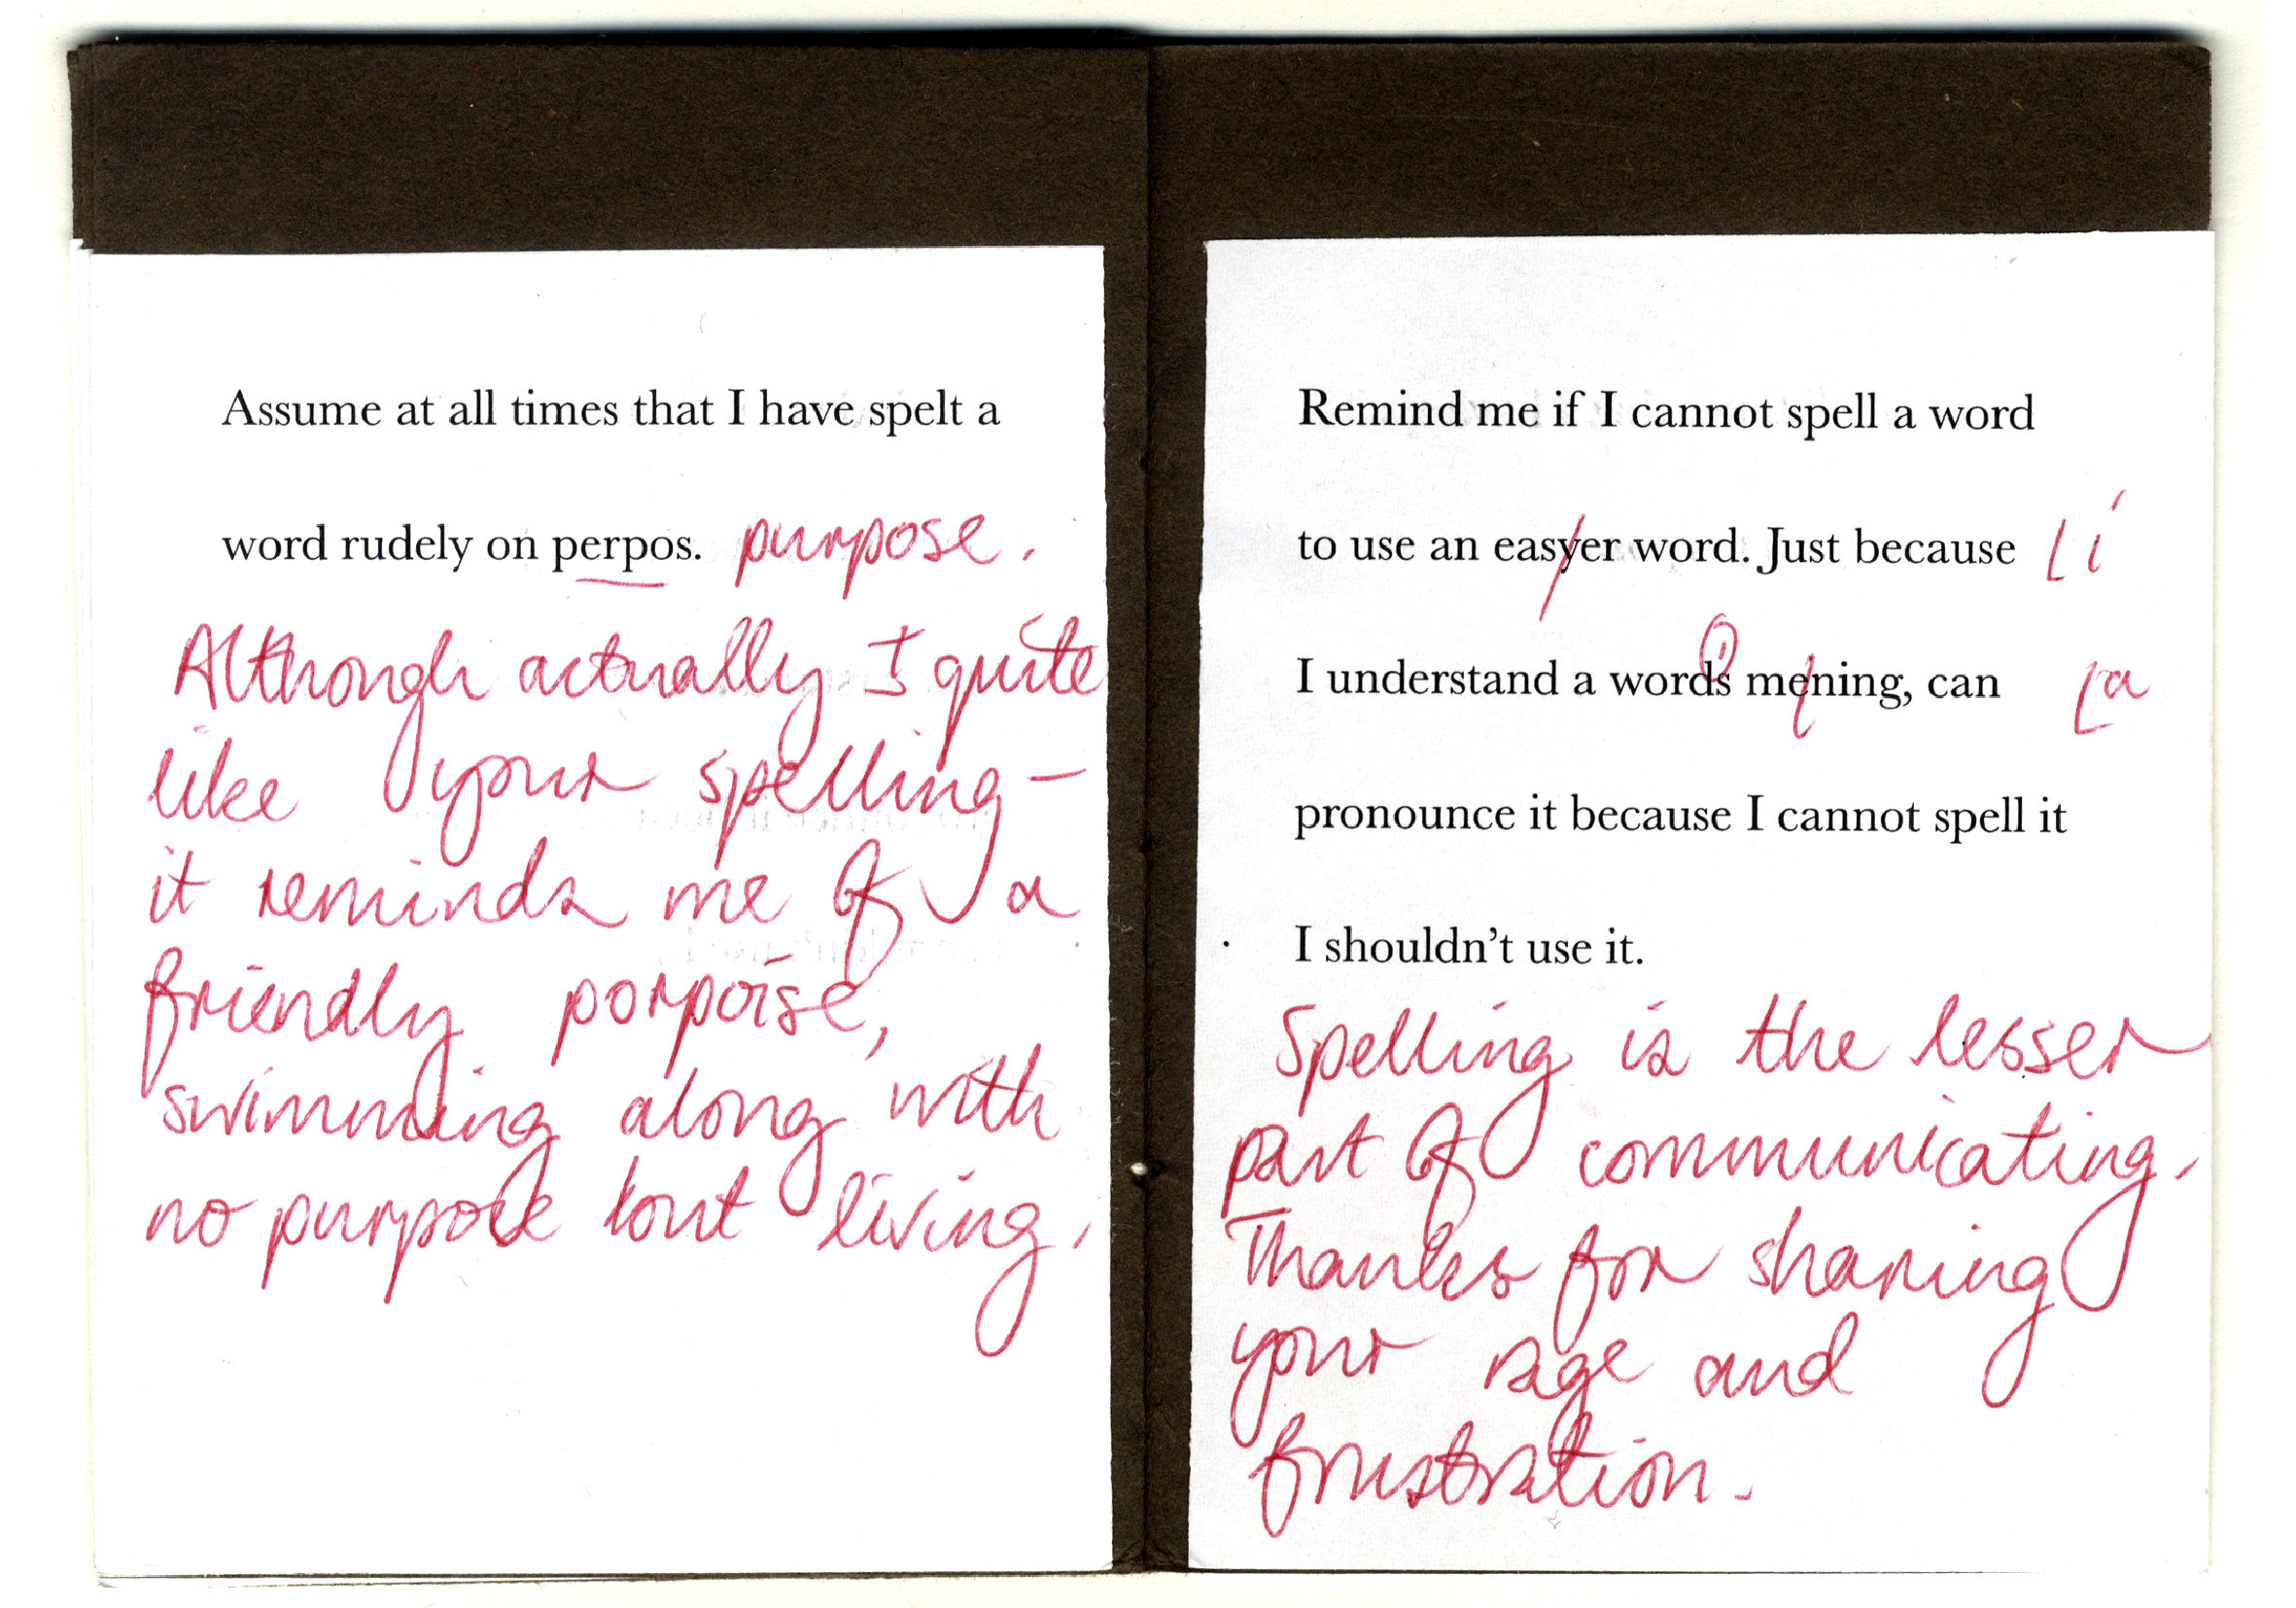 Assume at all times that I have spelt a
word rudely on perpos. purpose.
Although actually I quite
like your spelling –
it reminds me of a
friendly porpoise,
swimming along with
no purpose but living.
Remind me if I cannot spell a word
to use an easyer word. Just because [ i
'
I understand a words mening, can [ a
pronounce it because I cannot spell it
I shouldn't use it.
Spelling is the lesser
part of communicating.
Thanks for sharing
your rage and
frustration.